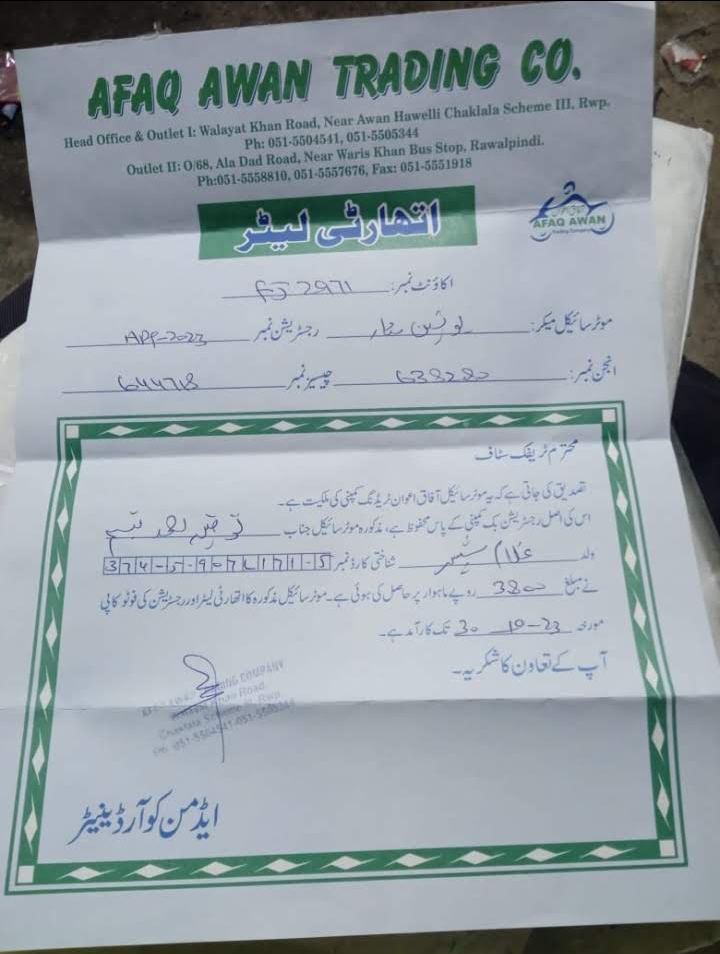 AFAQ AWAN TRADING CO.
Head Office & Outlet I: Walayat Khan Road, Near Awan Hawelli Chaklala Scheme III, Rwp.
Ph: 051-5504541, 051-5505344
Outlet II: O/68, Ala Dad Road, Near Waris Khan Bus Stop, Rawalpindi.
Ph:051-5558810, 051-5557676, Fax: 051-5551918
اتھارٹی لیٹر
AFAQ AWAN
Trading Company
اکاؤنٹ نمبر: 2971
موٹر سائیکل میکر: رجسٹریشن نمبر APP-2023
انجن نمبر: 638280 چیسیز نمبر 644718
محترم ٹریفک سٹاف
تصدیق کی جاتی ہے کہ یہ موٹر سائیکل آفاق اعوان ٹریڈنگ کمپنی کی ملکیت ہے۔
اس کی اصل رجسٹریشن بک کمپنی کے پاس محفوظ ہے، مذکورہ موٹر سائیکل جناب
ولد غلام شناختی کارڈ نمبر
نے مبلغ 3800 روپے ماہوار پر حاصل کی ہوئی ہے۔ موٹر سائیکل مذکورہ کا اتھارٹی لیٹر اور رجسٹریشن کی فوٹو کاپی
مورخہ 30-10-23 تک کارآمد ہے۔
آپ کے تعاون کا شکریہ۔
AFAQ AWAN TRADING COMPANY
Walayat Khan Road,
Chaklala Scheme III, Rwp.
Ph: 051-5504541-051-5505344
ایڈمن کوآرڈینیٹر